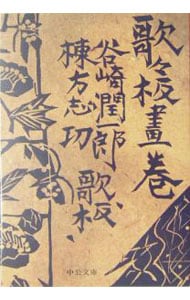 歌々板畫巻
谷崎潤一郎 歌
棟方志功 板
中公文庫